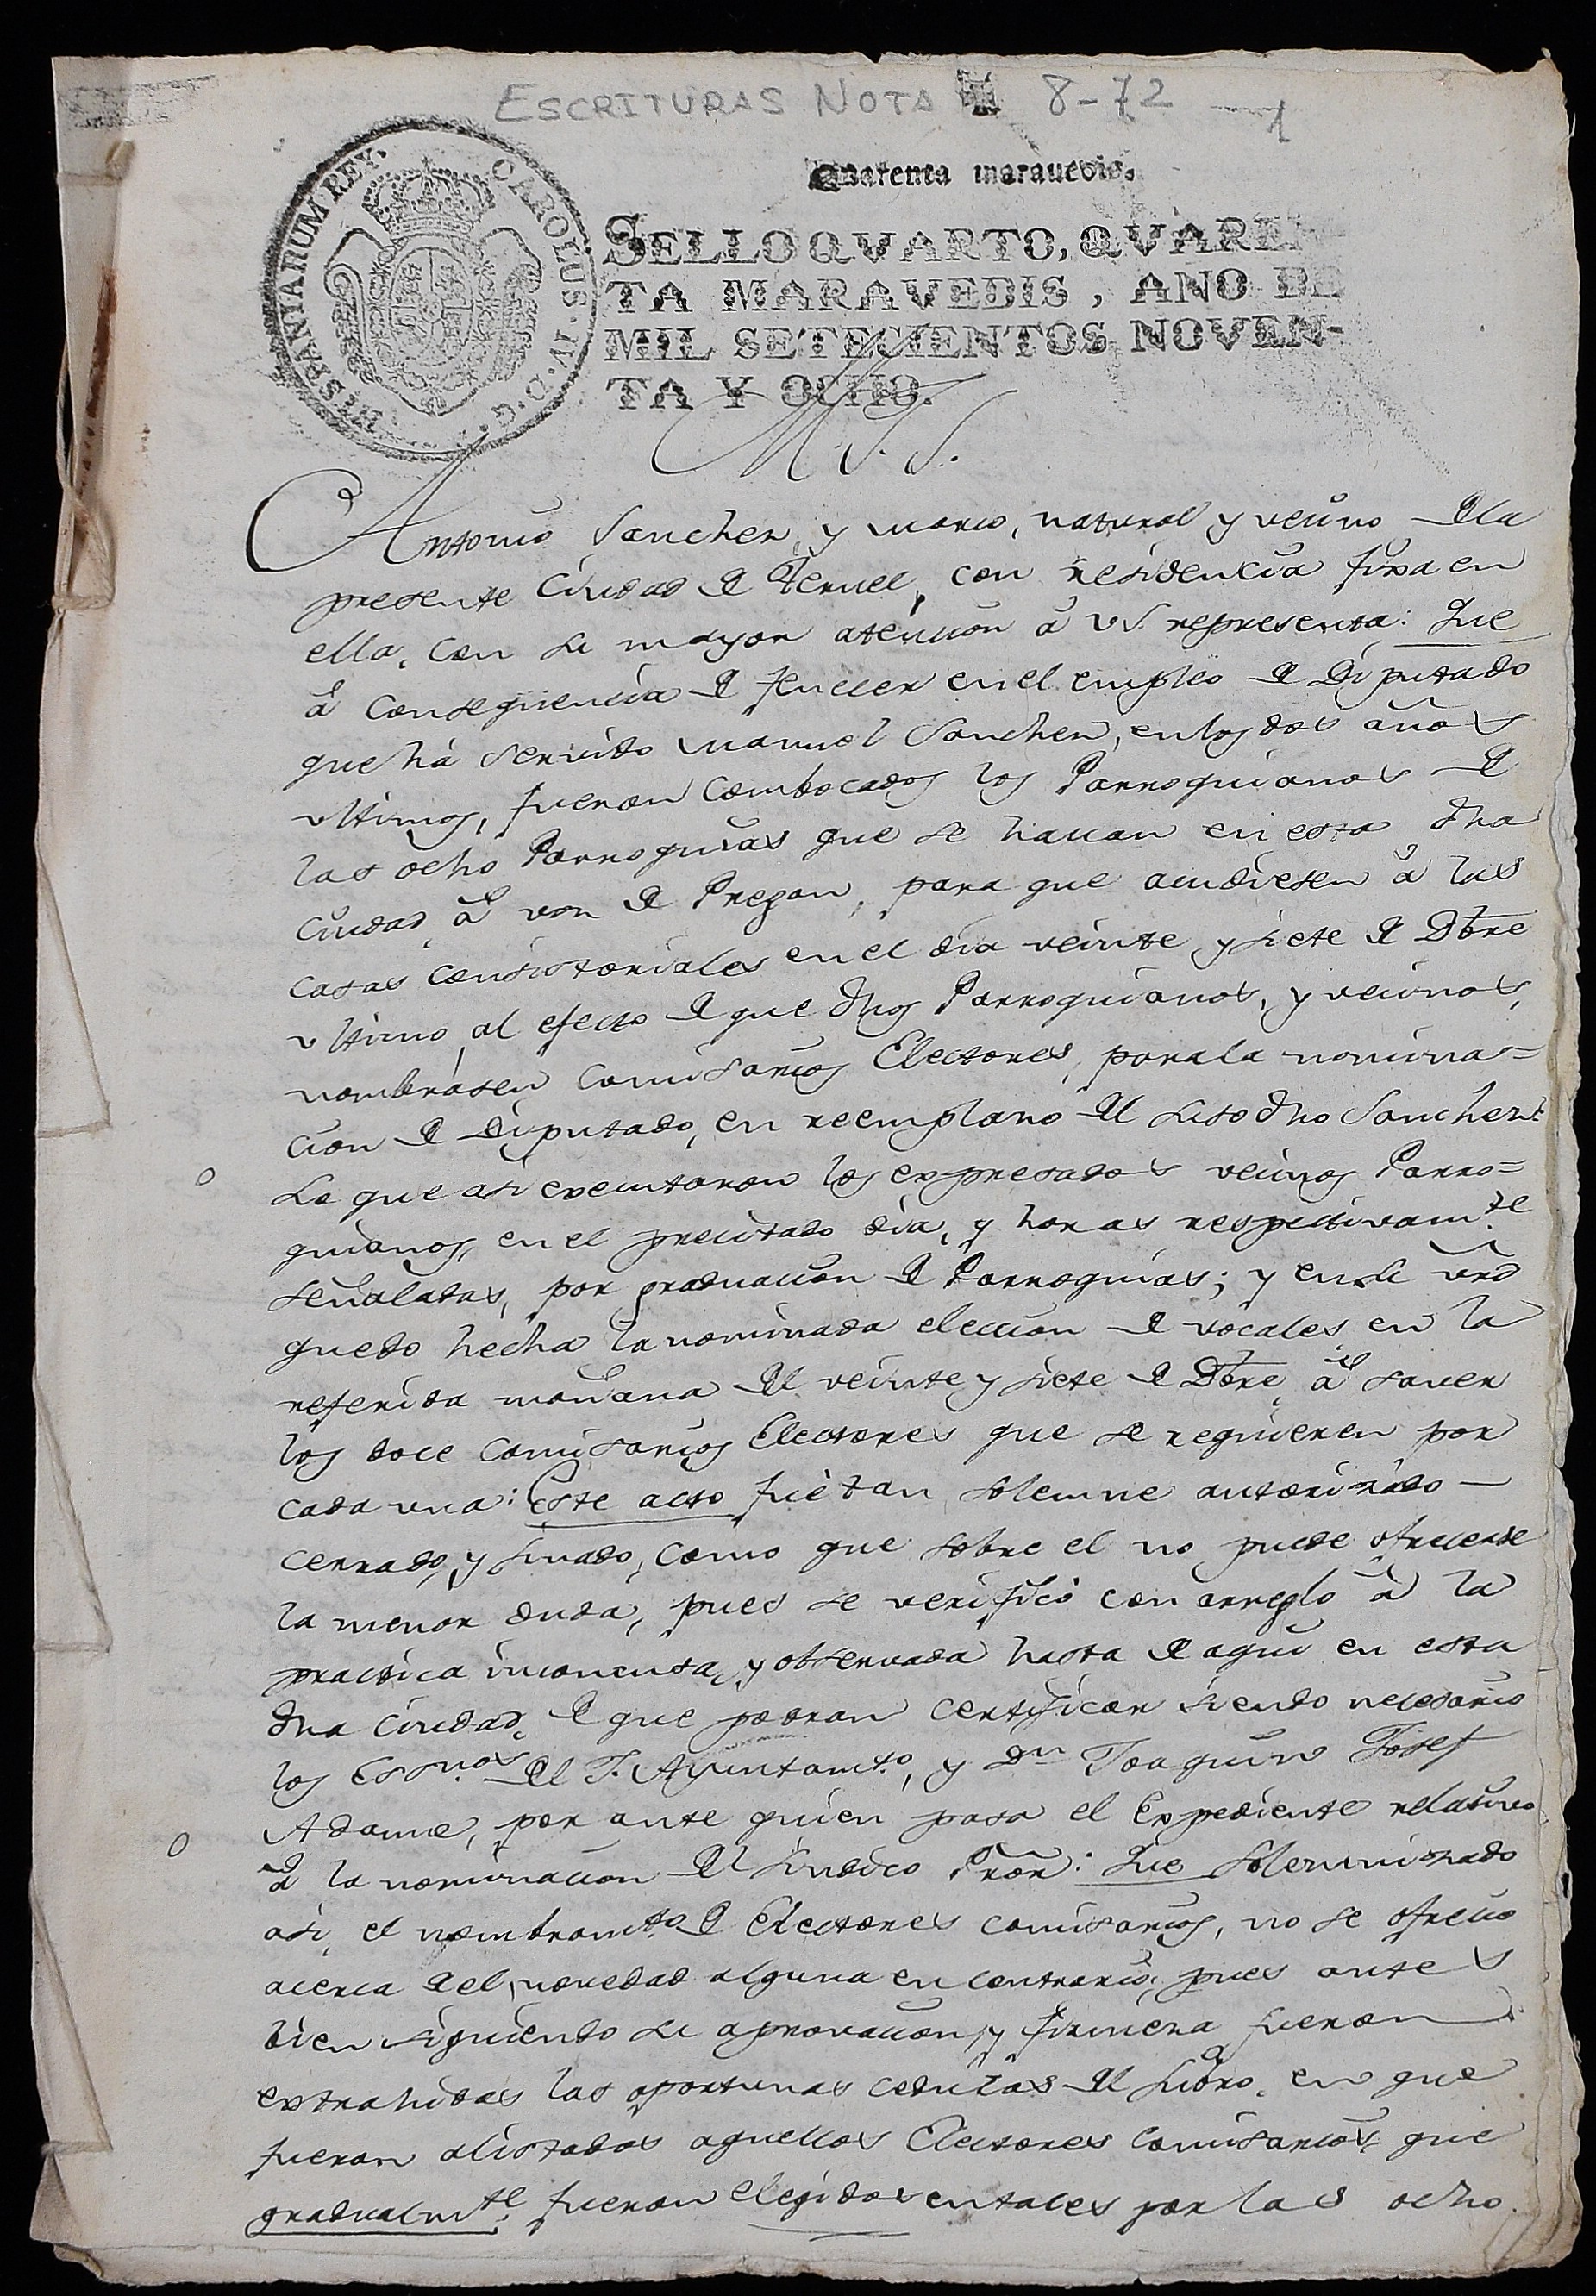 ESCRITURAS NOTA 8-72 1
Quarenta maravedis.
HISPANIARUM REX. CAROLUS. IV. D. G.
SELLO QVARTO, QVAREN
TA MARAVEDIS, AÑO DE
MIL SETECIENTOS NOVEN-
TA Y OCHO.
M. S. S.
Antonio Sanchez, y Marco, natural y vecino de la
presente Ciudad de Teruel, con residencia fixa en
ella, con su mayor atencion â VS. representa: Que
â consequencia de fenecer en el empleo de Diputado
que hà servido Manuel Sanchez, en los dos años
vltimos, fueron combocados los Parroquianos de
las ocho Parroquias que se hallan en esta dha
Ciudad, â voz de Pregon, para que acudiesen â las
casas consistoriales en el dia veinte y siete de Dbre
vltimo, al efecto de que dhos Parroquianos, y vecinos,
nombrasen Comisarios Electores, para la nomina=
cion de Diputado, en reemplazo del suso dho Sanchez:
Lo que asi executaron los expresados vecinos Parro=
quianos, en el precitado dia, y horas respectivamte
señaladas, por graduacion de Parroquias; y en su vrd
quedo hecha la nominada eleccion de vocales en la
referida mañana del veinte y siete de Dbre, â saver
los doce Comisarios Electores que se requieren por
cada una: Este acto fue tan solemne autorizado
cerrado, y sinado, como que sobre el no puede ofrecerse
la menor duda, pues se verificò con arreglo â la
practica inconcusa, y observada hasta de aqui en esta
dha Ciudad, de que podran certificar siendo necesario
los Essnos del I. Ayuntamto, y Dn Joaquin Josef
Adame, por ante quien pasa el Expediente relativo
â la nominacion del Sindico Pror: Que solemnizado
asi, el nombramto de Electores comisarios, no se ofrecio
acerca de el, novedad alguna en contrario, pues antes
bien siguiendo su aprovacion, y firmeza fueron
extrahidas las oportunas cedulas del Libro, en que
fueron alistados aquellos Electores Comisarios, que
gradualmte fueron elegidos en tales por las ocho